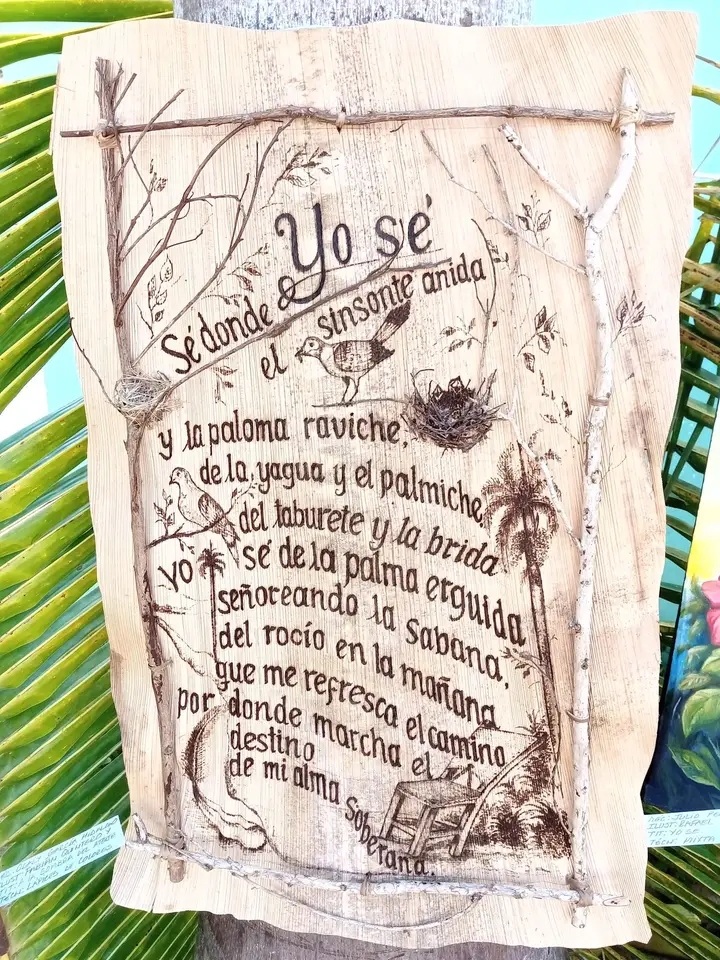 Yo sé
Sé donde
el sinsonte anida
y la paloma raviche,
de la yagua y el palmiche,
del taburete y la brida
yo sé de la palma erguida
señoreando la sabana,
del rocío en la mañana
que me refresca el camino
por donde marcha el
destino
de mi alma soberana.
TIT: YO SE